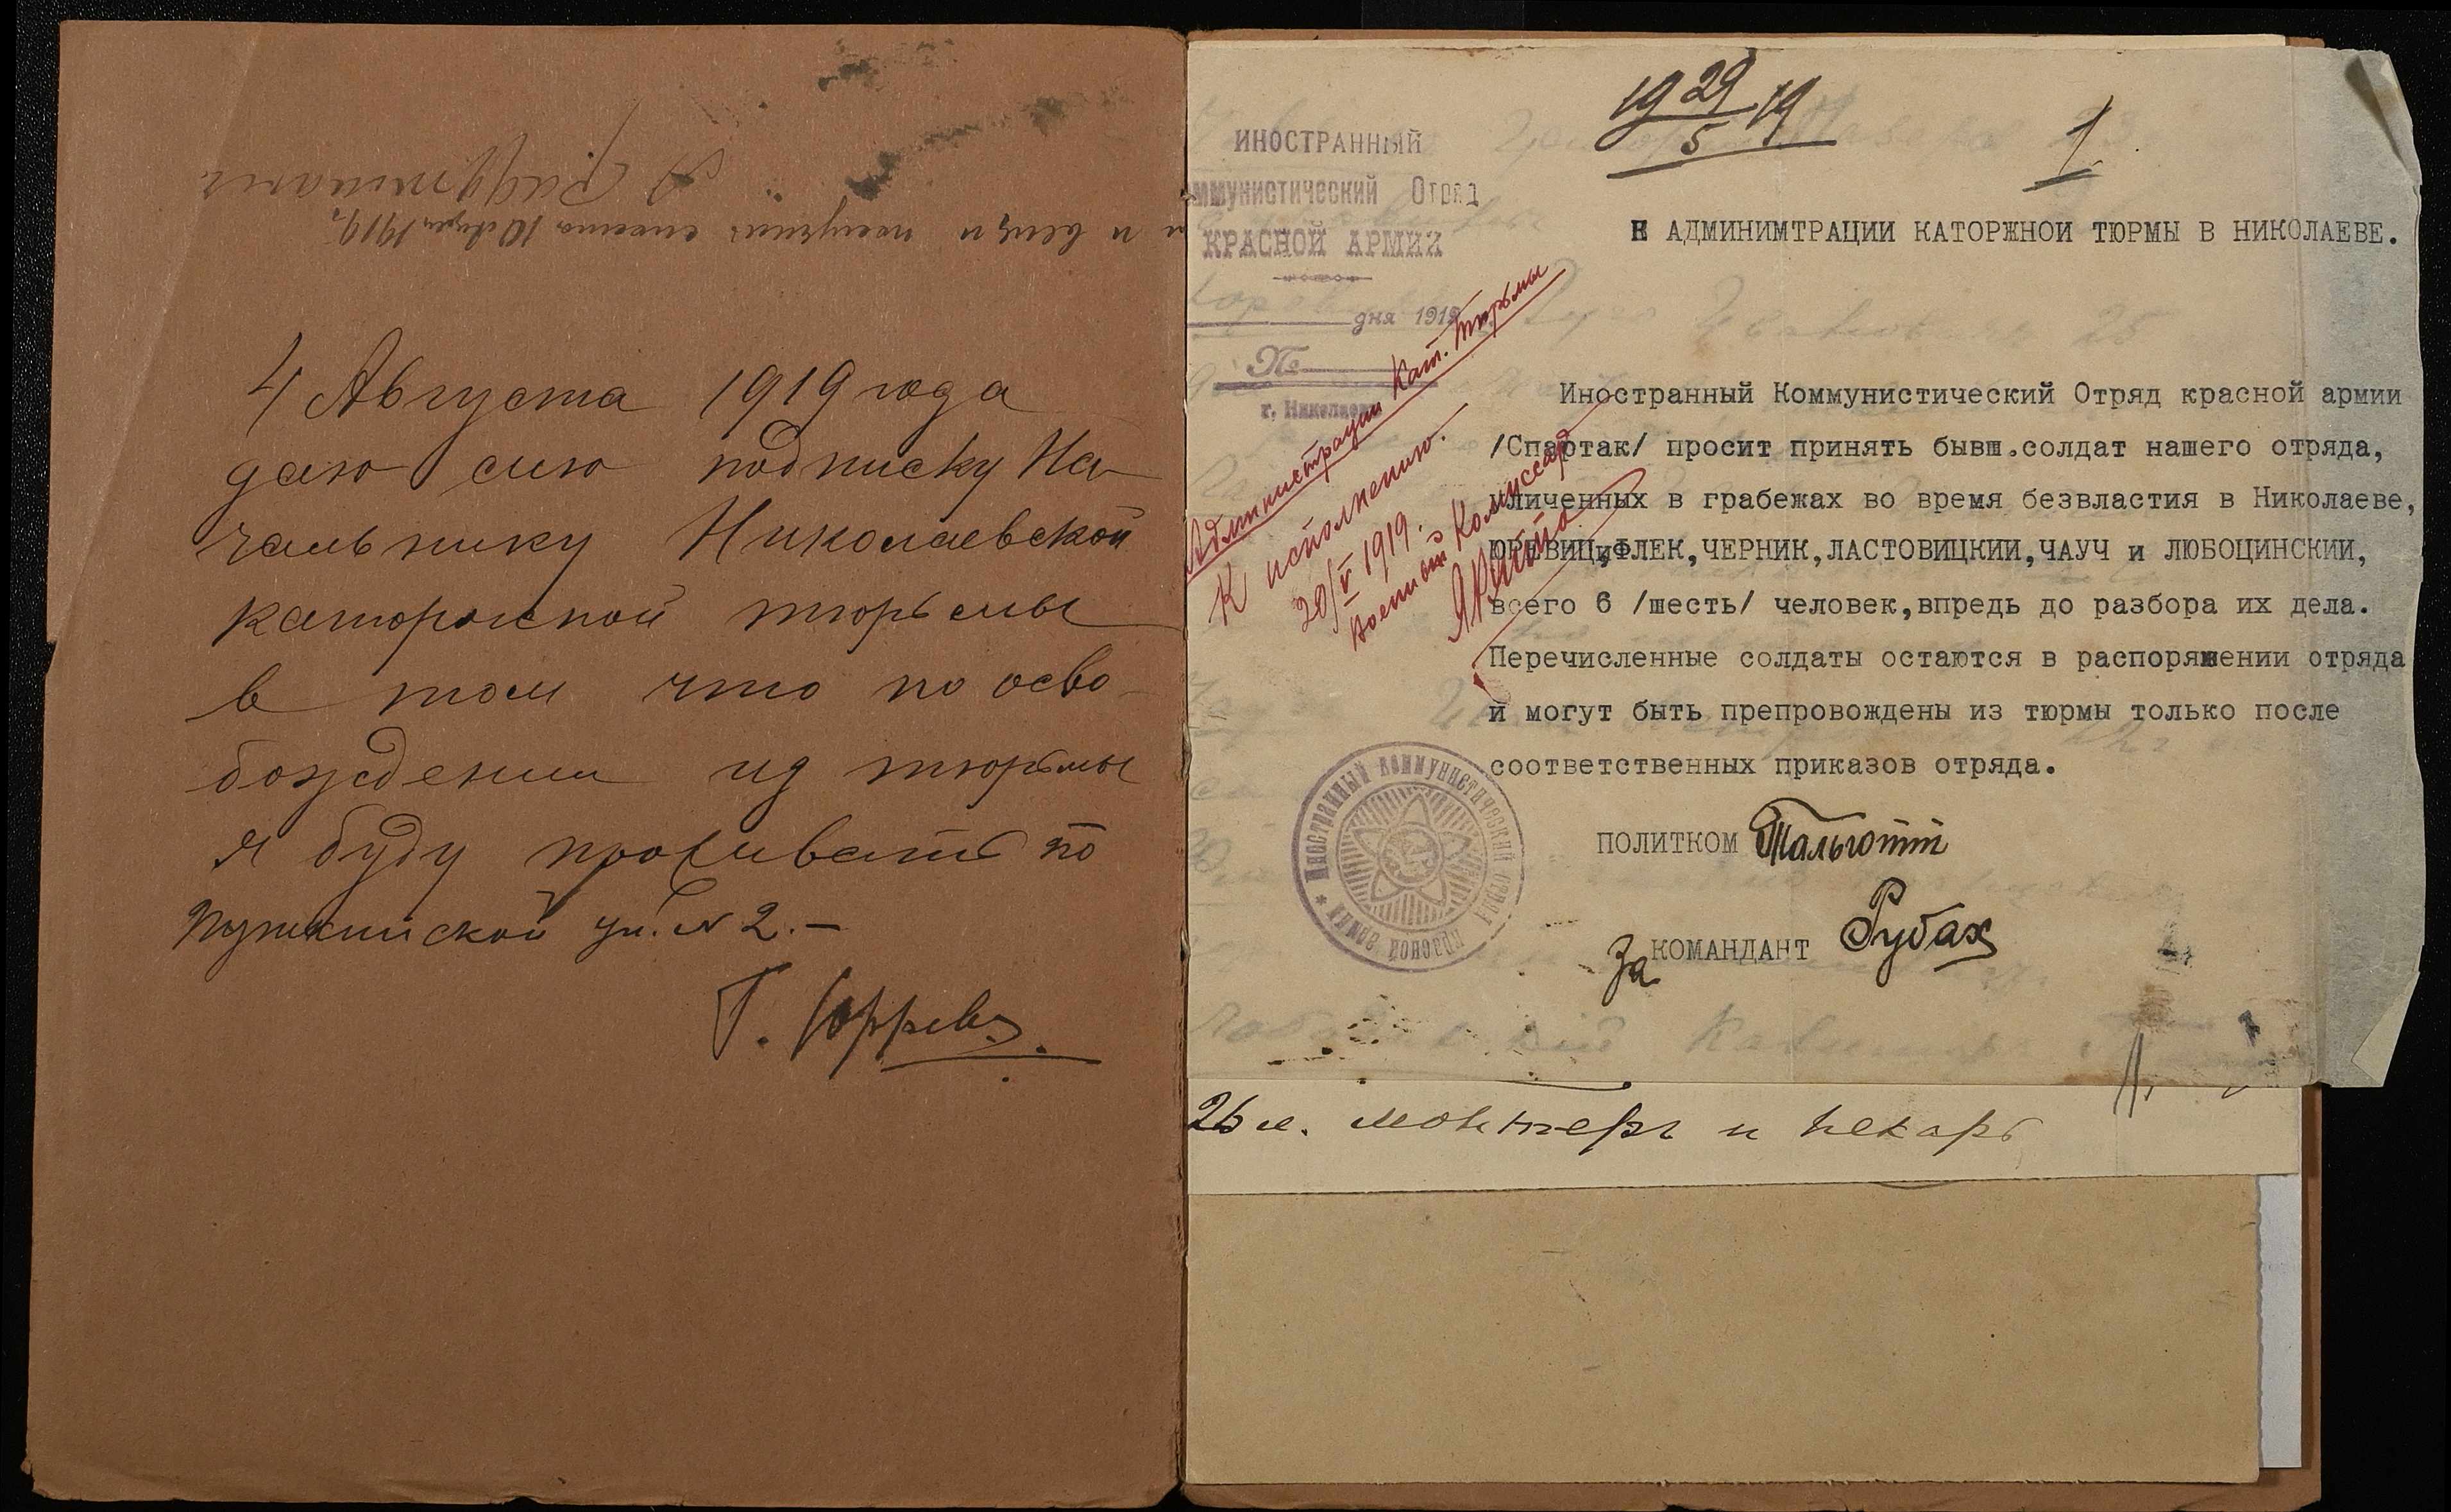 и вещи и получил сполна 10 Августа 1919 г.
4 Августа 1919 года
даю сию подписку На-
чальнику Николаевской
каторжной тюрьмы
в том что по осво-
бождении из тюрьмы
я буду проживать по
Пушкинской ул. № 2.-
Г.
19 29/5 19
1
ИНОСТРАННЫЙ
ммунистический Отряд
КРАСНОЙ АРМИИ
дня 1919
№
г. Николаев
Администрации Кат. тюрьмы
К исполнению.
29/V 1919.
Военный Комиссар
К АДМИНИМТРАЦИИ КАТОРЖНОИ ТЮРМЫ В НИКОЛАЕВЕ.
Иностранный Коммунистический Отряд красной армии
/Спартак/ просит принять бывш.солдат нашего отряда,
уличенных в грабежах во время безвластия в Николаеве,
ЮРЕВИЦ,ФЛЕК,ЧЕРНИК,ЛАСТОВИЦКИИ,ЧАУЧ и ЛЮБОЦИНСКИИ,
всего 6 /шесть/ человек,впредь до разбора их дела.
Перечисленные солдаты остаются в распоряжении отряда
и могут быть препровождены из тюрмы только после
соответственных приказов отряда.
Иностранный Коммунистический отряд красной армии
ПОЛИТКОМ Тальготт
За КОМАНДАНТ Рубах
26 л. монтеръ и пекарь